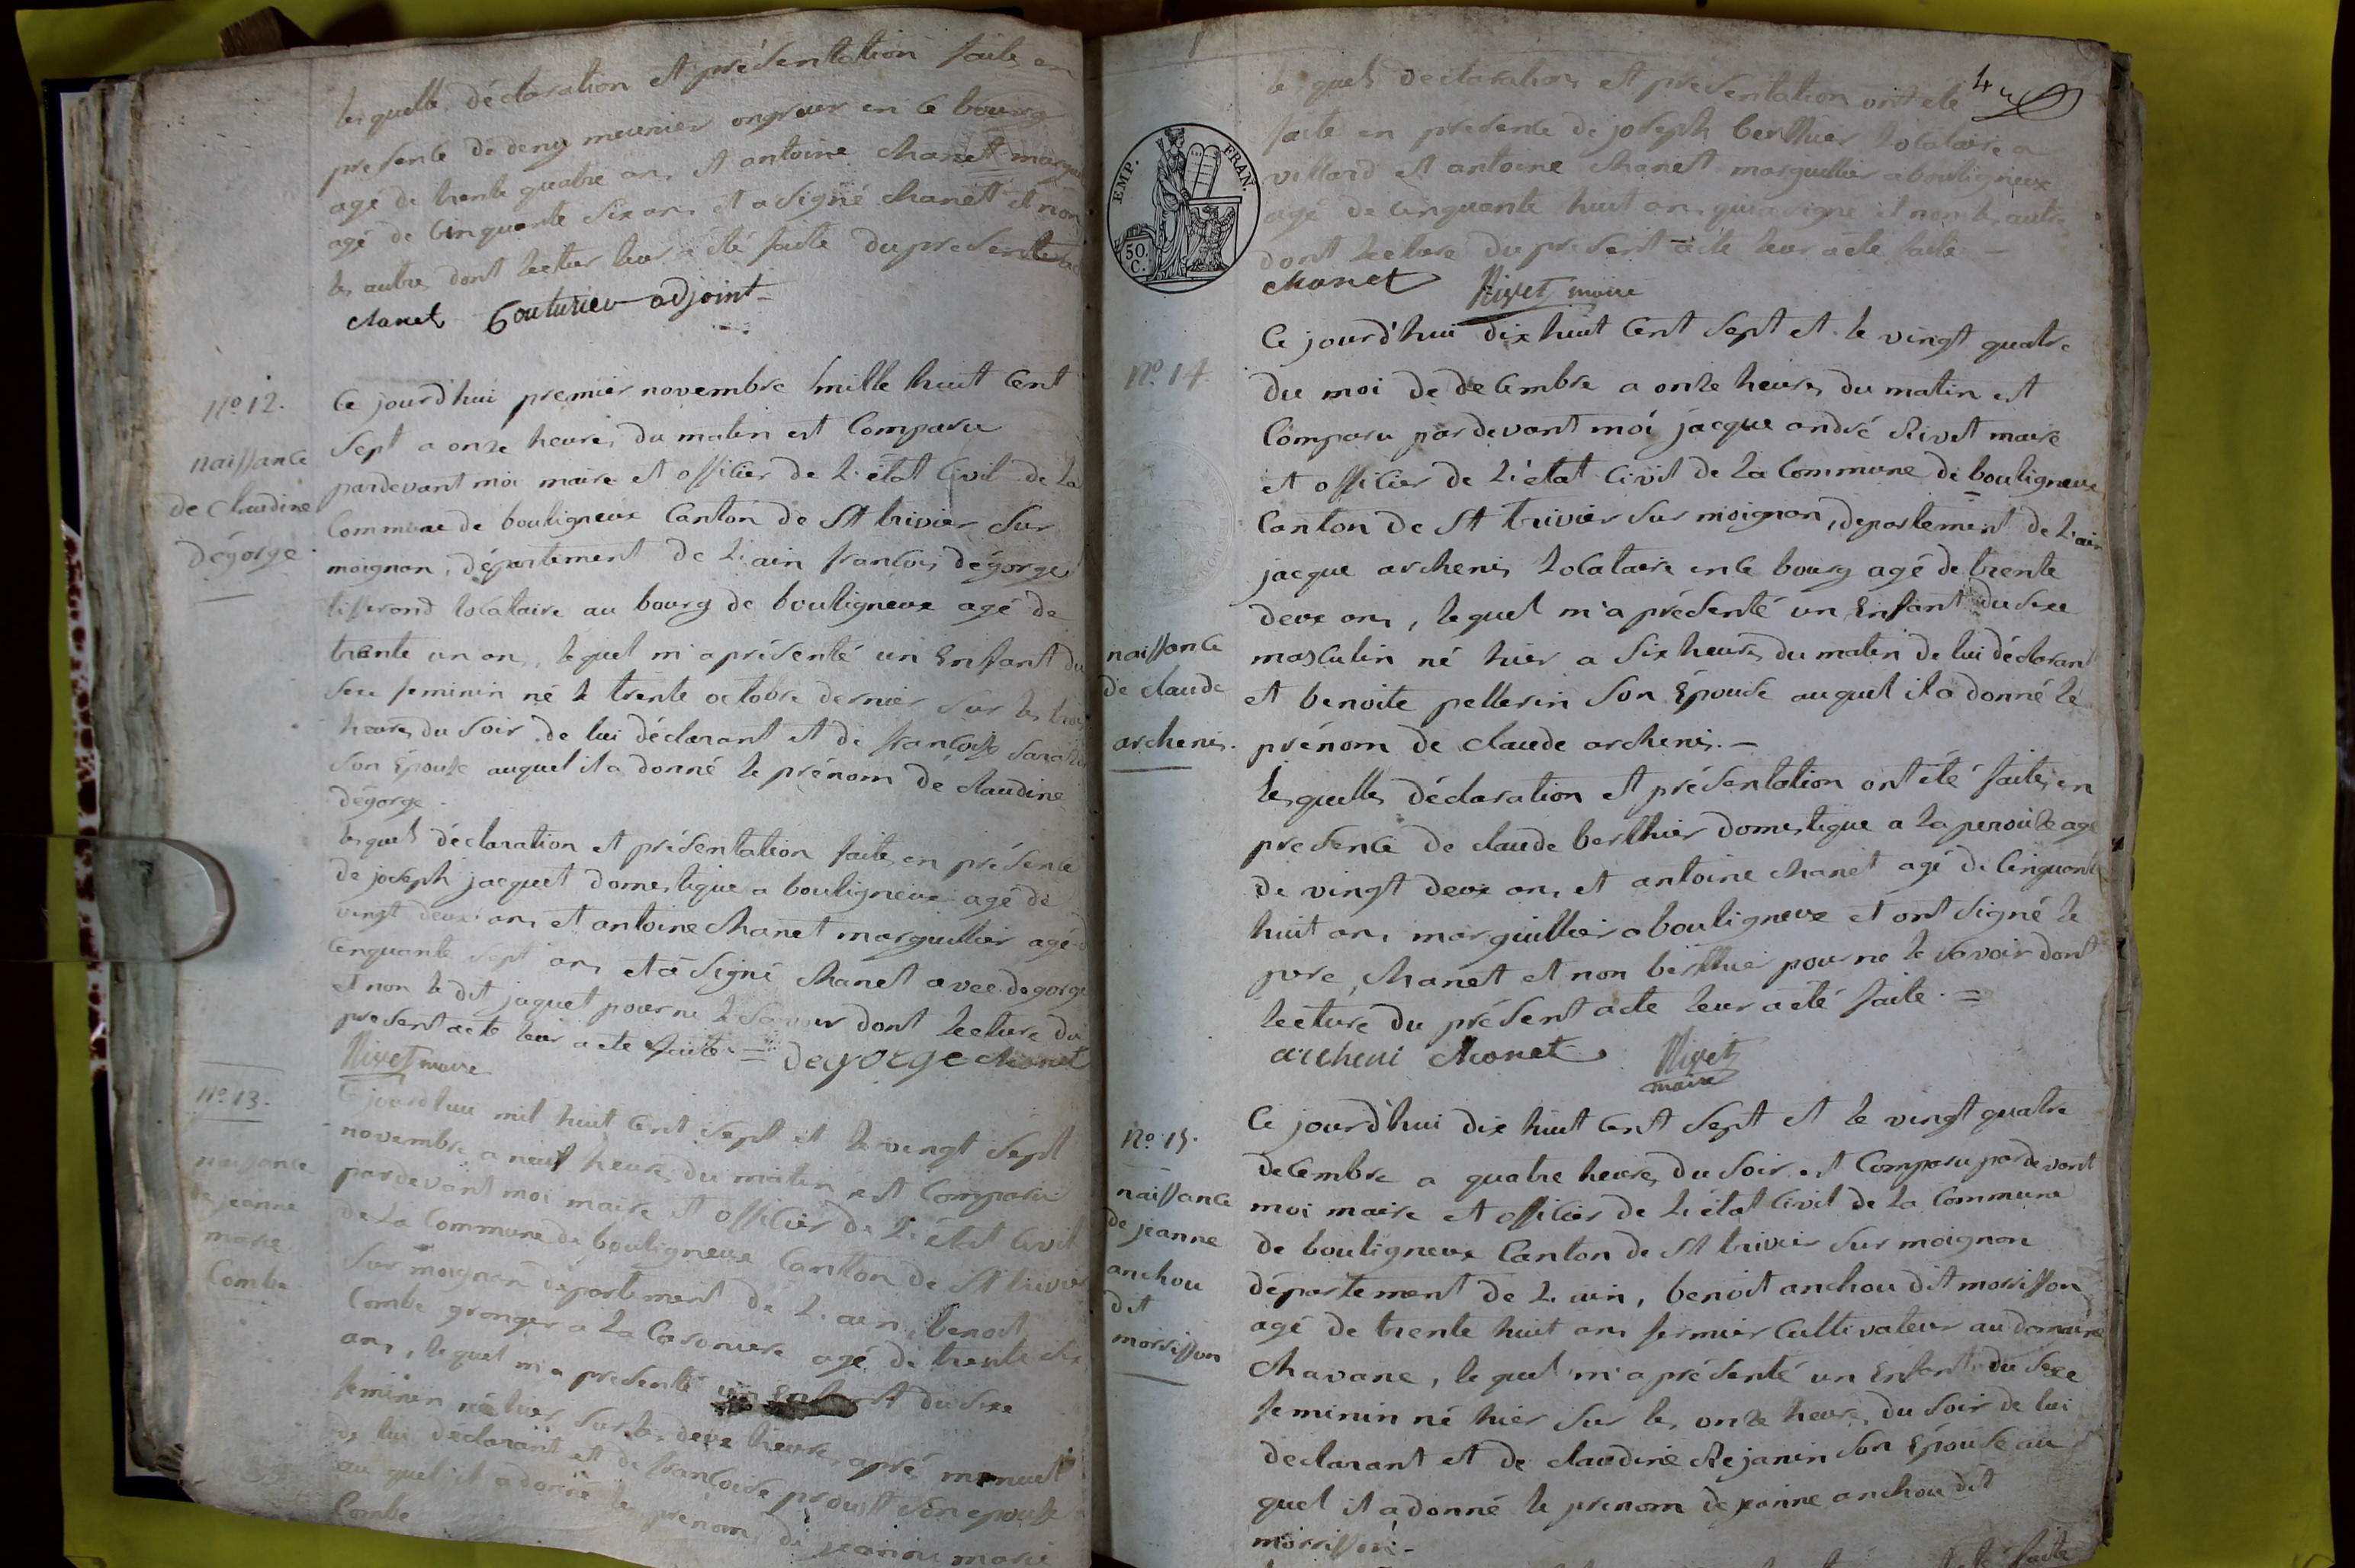 les quelle déclaration et présentation faite en
presence de deny meunier ongreur en ce bourg
agé de trente quatre ans et antoine chanet margui
agé de cinquante six ans et a signé chanet et non
les autres dont lectur leur a été faite du present ac
chanet Couturier adjoint
No 12.
naissance
de Claudine
dégorge
Ce jourd'hui premier novembre mille huit cent
sept a onze heures du matin est comparu
pardevant moi maire et officier de l'état civil de la
commune de bouligneux canton de St trivier sur
moignan, département de l'ain francois dégorge
tisserand locataire au bourg de bouligneux agé de
trente un ans, lequel m'a présenté un enfant du
sexe feminin né le trente octobre dernier sur les trois
heures du soir de lui déclarant et de françoise
son épouse auquel il a donné le prénom de claudine
dégorge.
lesquels déclaration et présentation faite en présence
de joseph jacquet domestique a bouligneux agé de
vingt deux ans et antoine chanet marguillier agé d
cinquante sept ans et a signé chanet avec degorge
et non le dit jaquet pour ne le savoir dont lecture du
present acte leur a ete faite = degorge chanet
Rivet maire
No 13.
naissance
de jeanne
marie
Combe
Ce jourdhui mil huit cent sept et le vingt sept
novembre a neuf heures du matin est comparu
pardevant moi maire et officier de l'état civil
de la commune de bouligneux canton de St trivier
sur moignan departement de l'ain, benoit
Combe granger a la agé de trente six
ans, lequel m'a presenté un enfant du sexe
feminin né hier sur les deux heures après menuit
de lui déclarant et de francoise proust son epouse
au quel il a donné le prénom de jeanne marie
Combe
4
lesquels declaration et presentation ont ete
faite en presence de joseph berthier locataire a
villard et antoine chanet marguillier a bouligneux
agé de cinquante huit ans qui a signé et non les autre
dont lecture du present acte leur a ete faite —
chanet Rivet maire
EMP. FRAN.
50 C.
No. 14
naissance
de claude
archenis.
Ce jourd'hui dix huit cent sept et le vingt quatre
du moi de decembre a onze heures du matin est
comparu pardevant moi jacque andré Rivet maire
et officier de l'état civil de la commune de bouligneux
canton de St trivier sur moignan, departement de l'ain
jacque archenis locataire en ce bourg agé de trente
deux ans, lequel m'a présenté un enfant du sexe
masculin né hier a six heures du matin de lui déclarant
et benoite pellerin son épouse auquel il a donné le
prénom de claude archenis. —
lesquelles déclaration et présentation ont été faites en
presence de claude berthier domestique a la agé
de vingt deux ans et antoine chanet agé de cinquante
huit ans marguillier a bouligneux et ont signé le
pere, chanet et non berthier pour ne le savoir dont
lecture du présent acte leur a été faite. =
archeni chanet Rivet
maire
No 15.
naissance
de jeanne
anchou
dit
morisson
Ce jourd'hui dix huit cent sept et le vingt quatre
decembre a quatre heures du soir est comparu pardevant
moi maire et officier de l'état civil de la commune
de bouligneux canton de St trivier sur moignan
département de l'ain, benoit anchou dit morisson
agé de trente huit ans fermier cultivateur au domaine
chavane, lequel m'a présenté un enfant du sexe
feminin né hier sur les onze heures du soir de lui
declarant et de claudine Rejanin son épouse au
quel il a donné le prenom de jeanne anchou dit
morisson. -